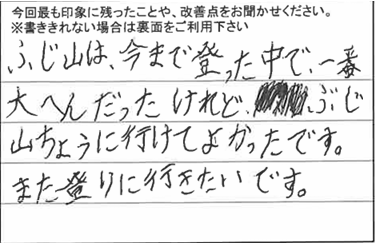 今回最も印象に残ったことや、改善点をお聞かせください。
※書ききれない場合は裏面をご利用下さい
ふじ山は、今まで登った中で、一番
大へんだったけれど、ぶじ
山ちょうに行けてよかったです。
また登りに行きたいです。